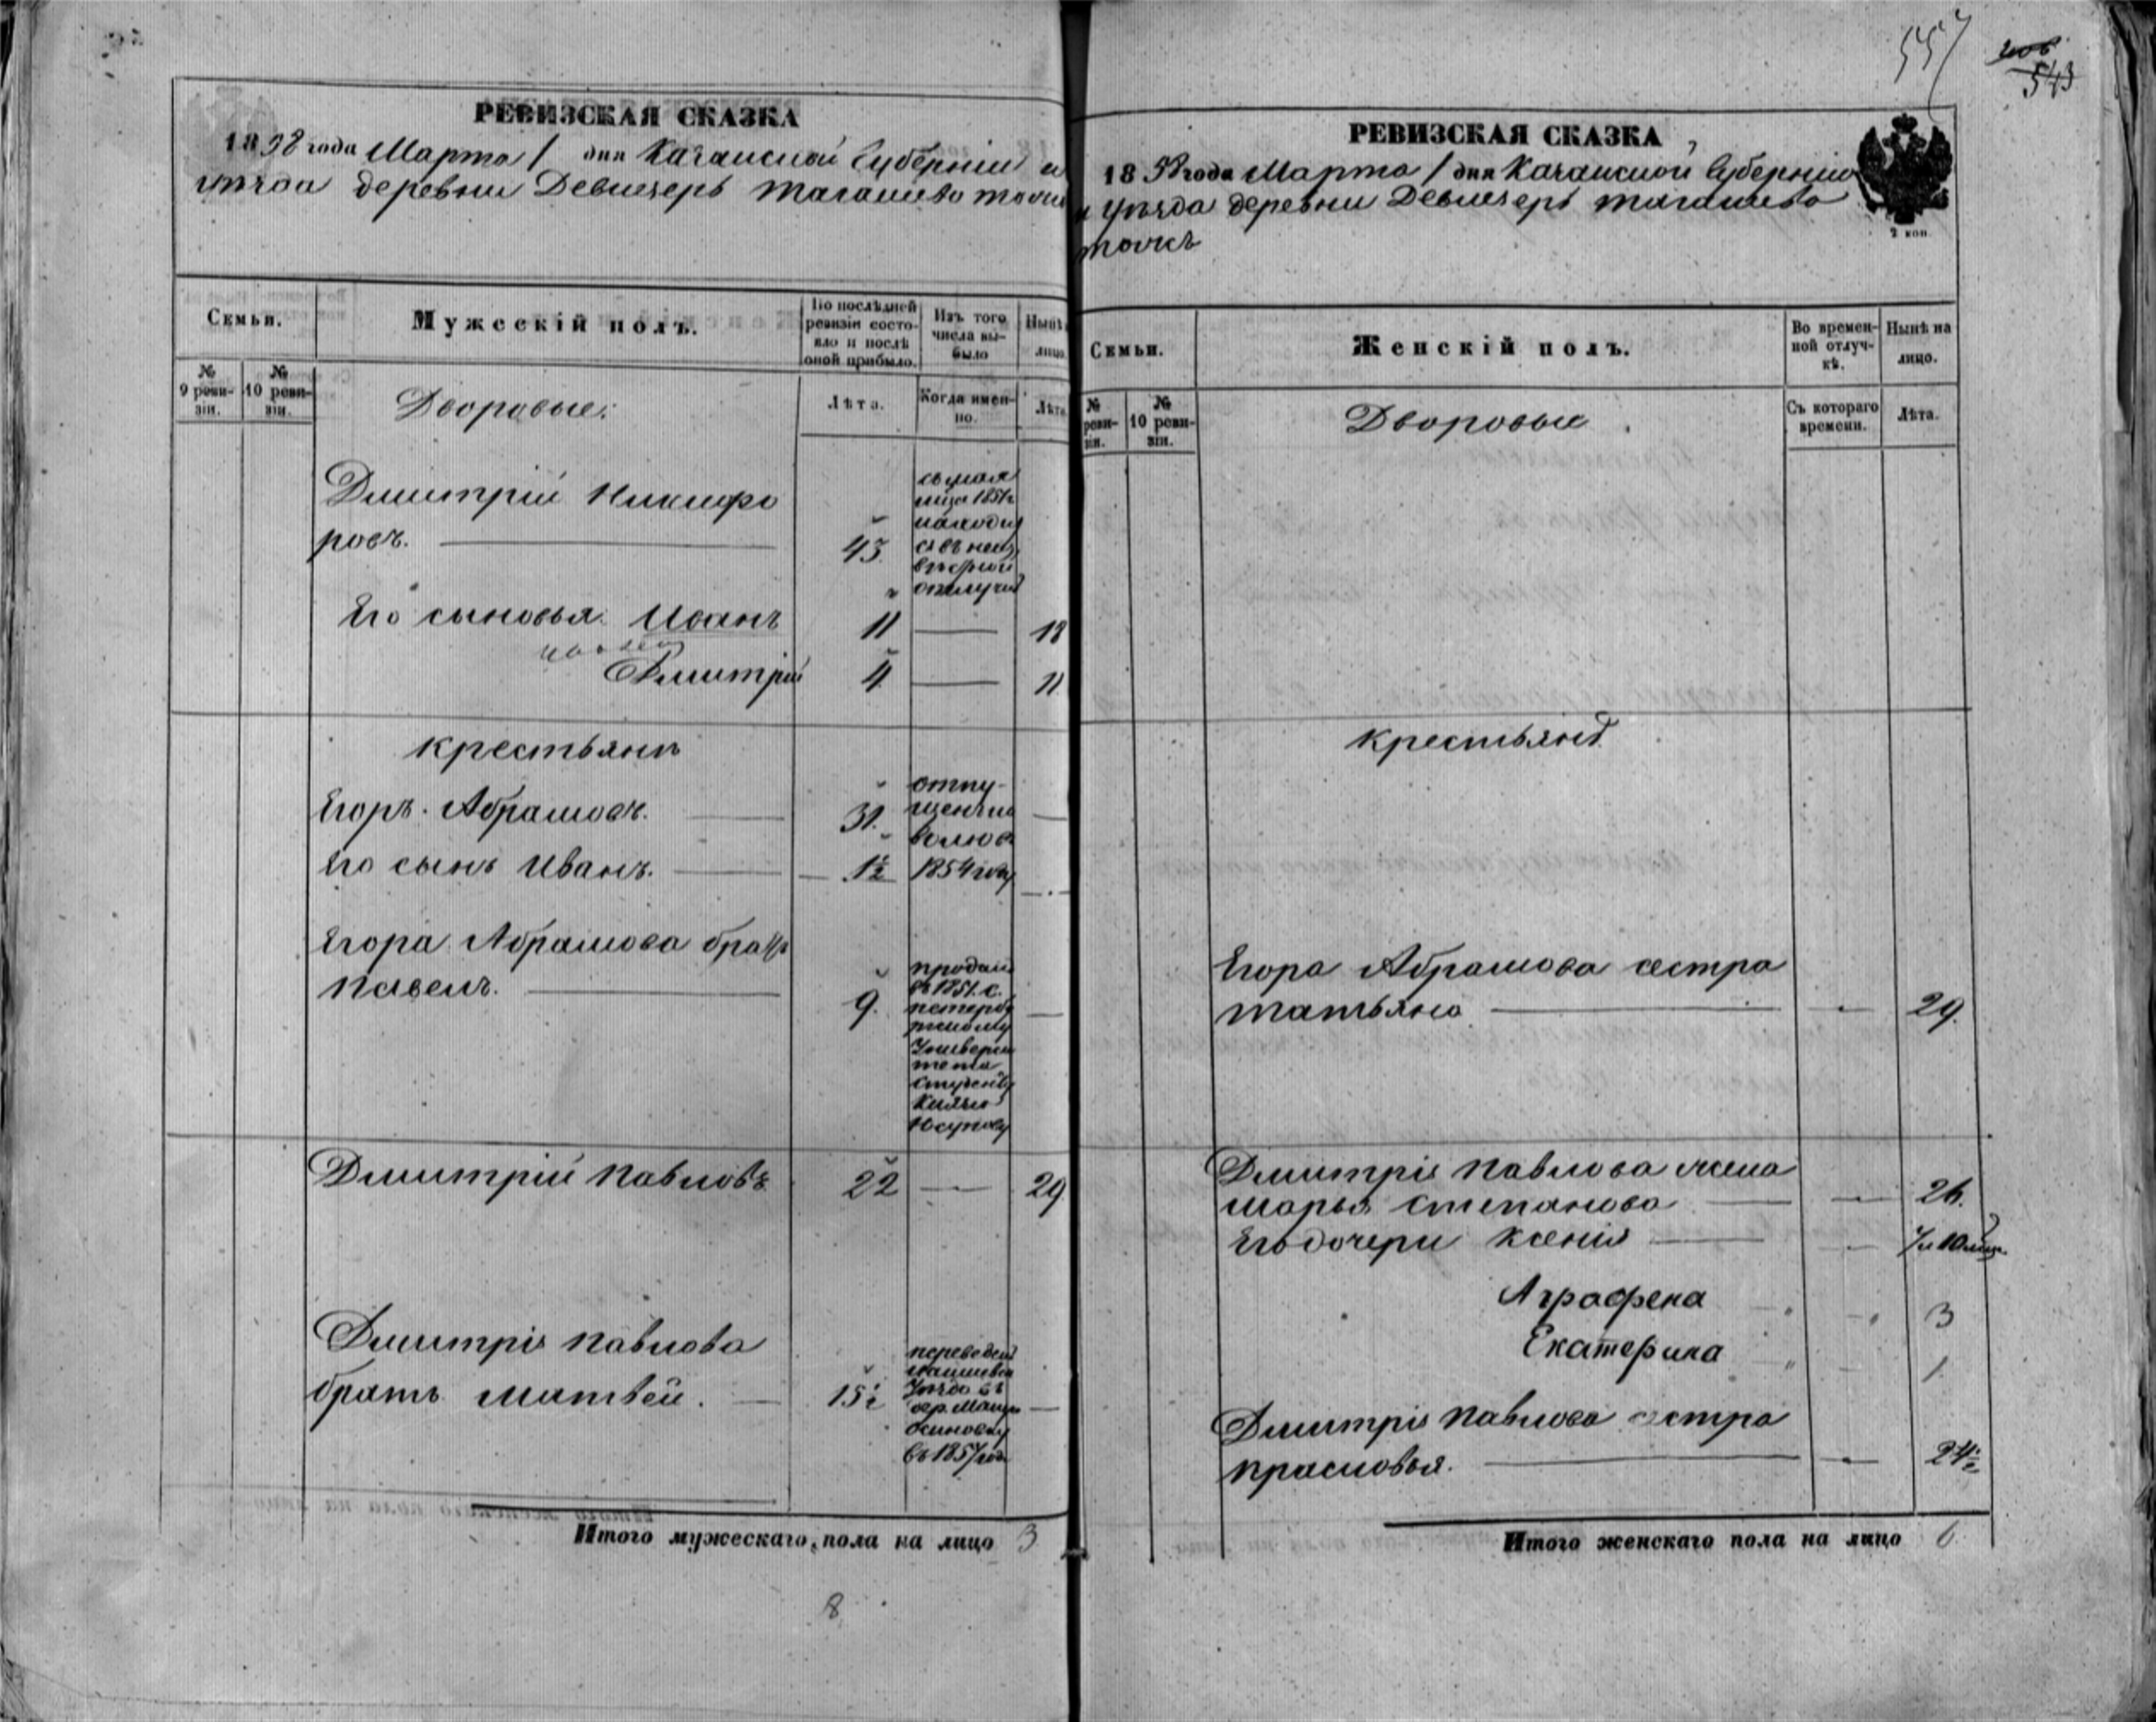 557
543
РЕВИЗСКАЯ СКАЗКА
1858 года Марта 1 дня Казанской Губерніи и
уѣзда деревни Девличеръ тагашево тожъ
Семьи.
Мужескій полъ.
По послѣдней ревизіи состояло и послѣ оной прибыло.
Изъ того числа выбыло
Нынѣ лицо.
№ 9 ревизіи.
№ 10 ревизіи.
Дворовые:
Лѣта.
Когда именно.
Лѣта
Дмитрій Никифо
ровъ. 43.
1851
находи
отлучкѣ
Его сыновья. Иванъ 11 18
Дмитрій 4 11
крестьянъ
Егоръ. Абрамовъ. 31.
отпу-
щены на
волю въ
Его сынъ Иванъ. 1½ 1854 году
Егора Абрамова братъ
Павелъ. 9.
проданъ
въ 1851. С.
петербу
ргскому
Универси
тета
студенту
Князю
Юсупову
Дмитрій Павловъ 22 29
Дмитрія Павлова
братъ Матвей. 15½
переведенъ
уѣзда въ
дер.
Осиновку
въ 1857 год
Итого мужескаго пола на лицо 3
8
РЕВИЗСКАЯ СКАЗКА
1858 года Марта 1 дня Казанской Губерніи
и Уѣзда деревни Девличеръ тагашево
тожъ
2 коп.
Семьи.
Женскій полъ.
Во временной отлучкѣ.
Нынѣ на лицо.
№ ревизіи.
№ 10 ревизіи.
Дворовые
Съ котораго времени.
Лѣта.
крестьянъ
Егора Абрамова сестра
татьяна 29.
Дмитрія Павлова жена
Марья Степанова 26.
Его дочери Ксенія
Аграфена 3
Екатерина 1
Дмитрія Павлова сестра
Прасковья. 24½
Итого женскаго пола на лицо 6